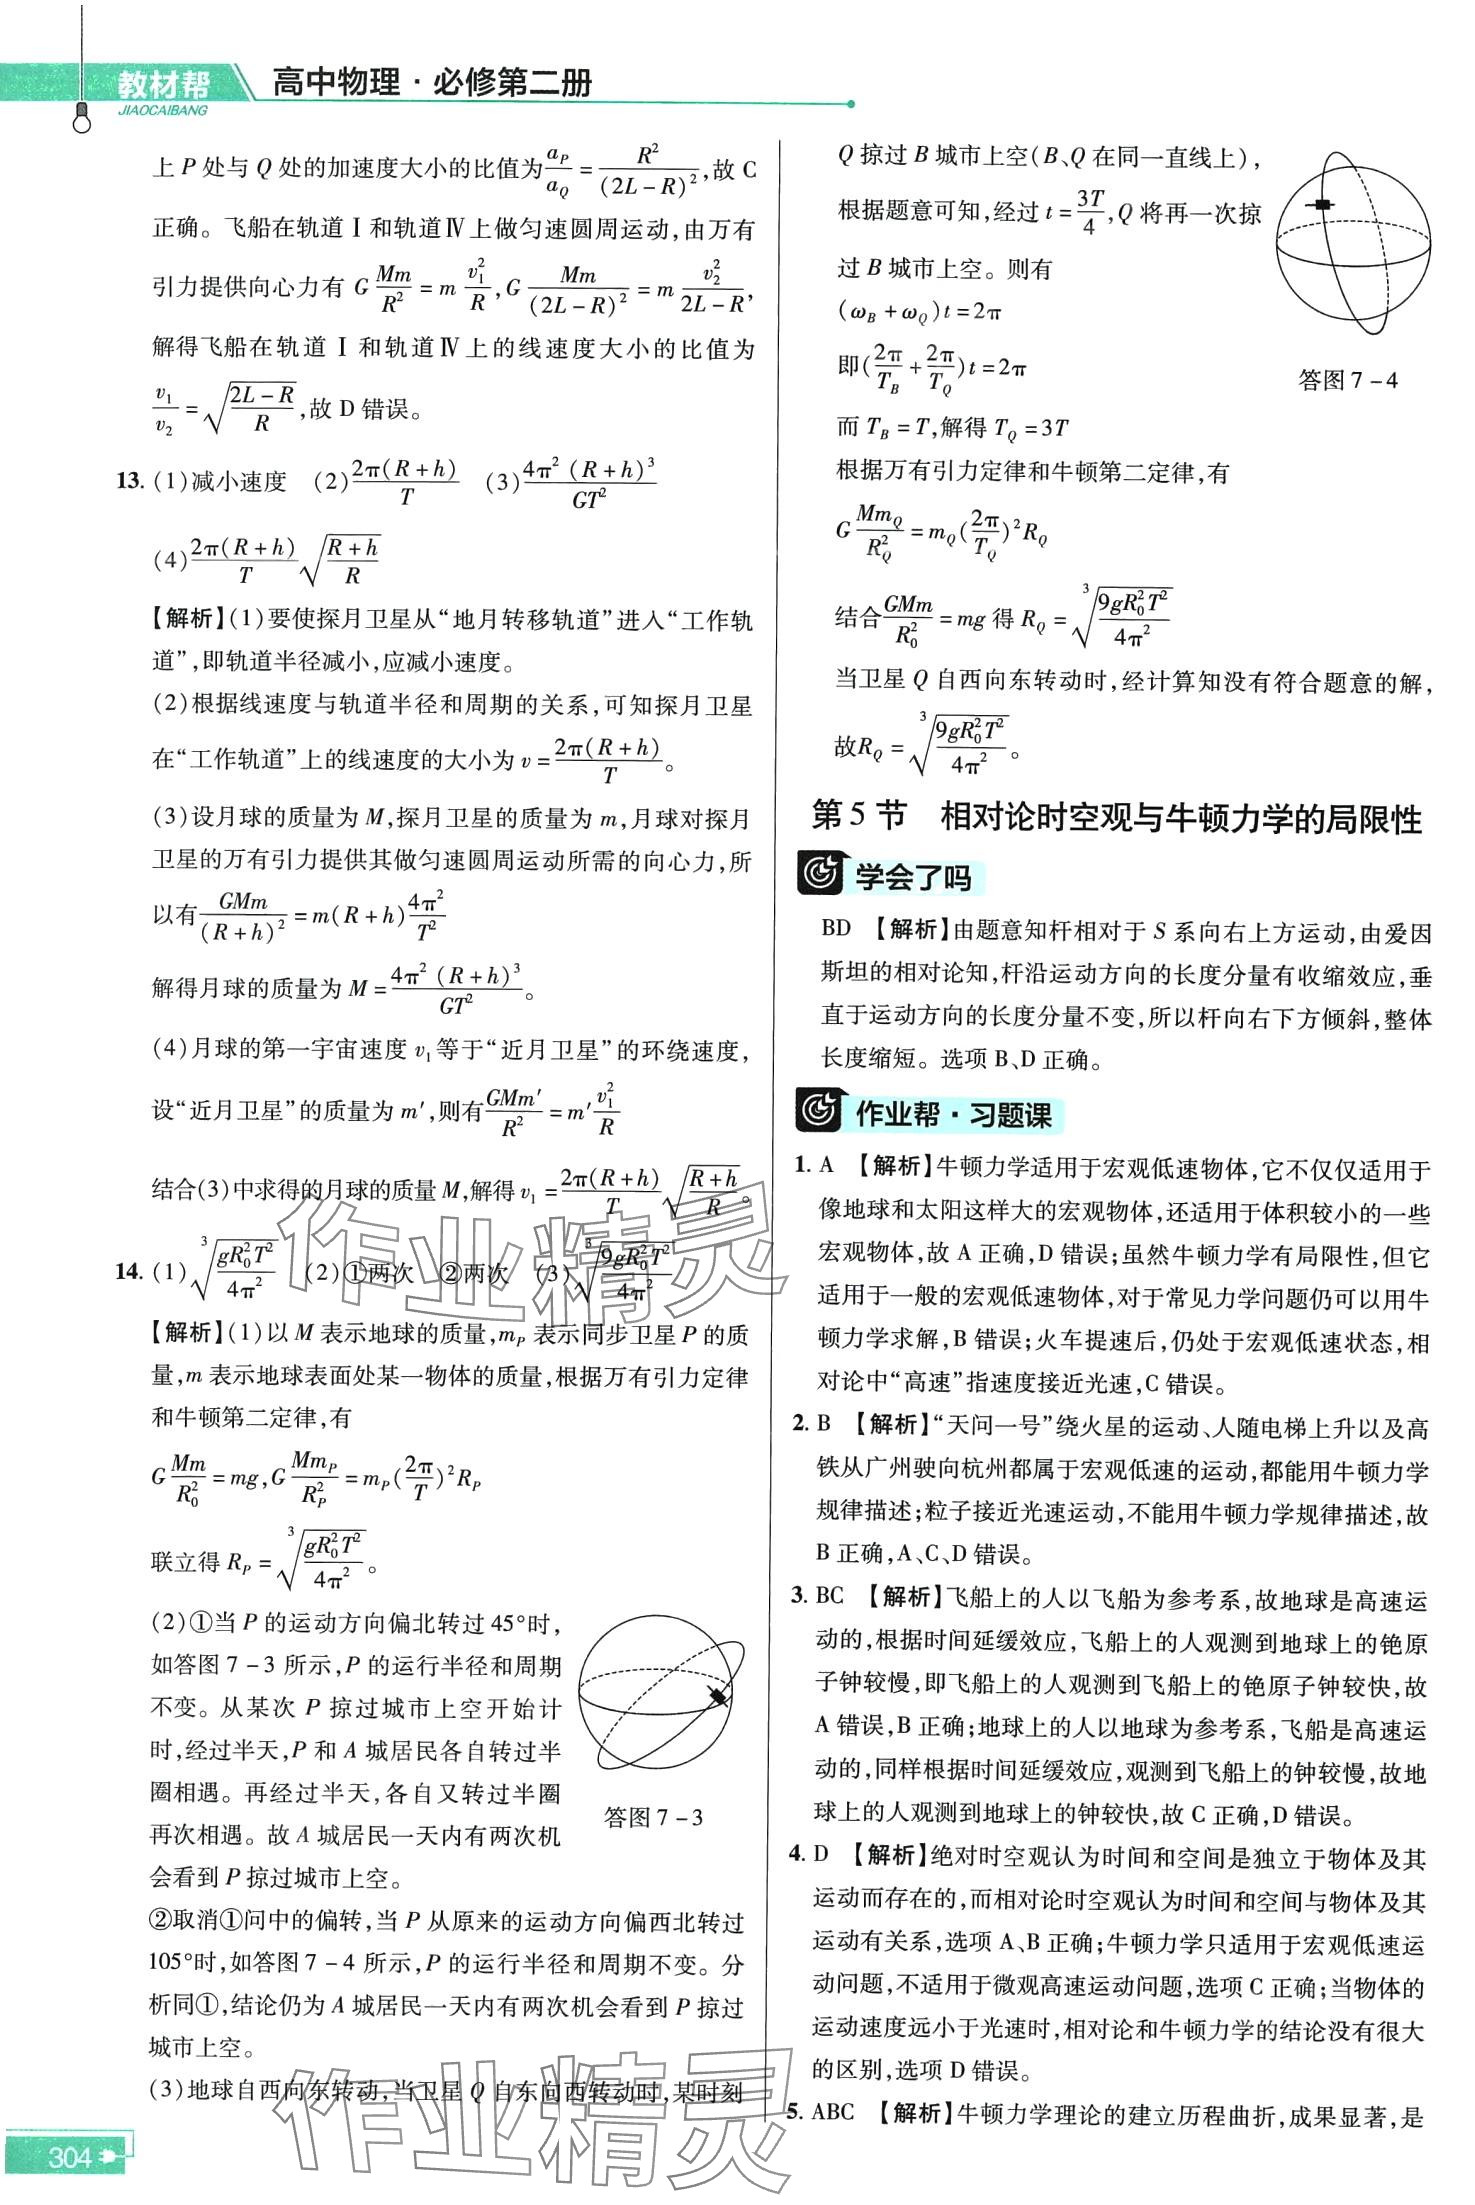 教材帮
JIAOCAIBANG
高中物理·必修第二册
上 P 处与 Q 处的加速度大小的比值为 a_P/a_Q = R²/(2L-R)²,故 C
正确。飞船在轨道Ⅰ和轨道Ⅳ上做匀速圆周运动,由万有
引力提供向心力有 G Mm/R² = m v₁²/R, G Mm/(2L-R)² = m v₂²/(2L-R),
解得飞船在轨道Ⅰ和轨道Ⅳ上的线速度大小的比值为
v₁/v₂ = √((2L-R)/R),故 D 错误。
13. (1)减小速度 (2) 2π(R+h)/T (3) 4π²(R+h)³/GT²
(4) 2π(R+h)/T √((R+h)/R)
【解析】(1)要使探月卫星从“地月转移轨道”进入“工作轨
道”,即轨道半径减小,应减小速度。
(2)根据线速度与轨道半径和周期的关系,可知探月卫星
在“工作轨道”上的线速度的大小为 v = 2π(R+h)/T。
(3)设月球的质量为 M,探月卫星的质量为 m,月球对探月
卫星的万有引力提供其做匀速圆周运动所需的向心力,所
以有 GMm/(R+h)² = m(R+h) 4π²/T²
解得月球的质量为 M = 4π²(R+h)³/GT²。
(4)月球的第一宇宙速度 v₁等于“近月卫星”的环绕速度,
设“近月卫星”的质量为 m′,则有 GMm′/R² = m′ v₁²/R
结合(3)中求得的月球的质量 M,解得 v₁ = 2π(R+h)/T √((R+h)/R)。
14. (1) ³√(gR₀²T²/4π²) (2)①两次 ②两次 (3) ³√(9gR₀²T²/4π²)
【解析】(1)以 M 表示地球的质量,m_P 表示同步卫星 P 的质
量,m 表示地球表面处某一物体的质量,根据万有引力定律
和牛顿第二定律,有
G Mm/R₀² = mg, G Mm_P/R_P² = m_P(2π/T)²R_P
联立得 R_P = ³√(gR₀²T²/4π²)。
(2)①当 P 的运动方向偏北转过 45°时,
如答图 7-3 所示,P 的运行半径和周期
不变。从某次 P 掠过城市上空开始计
时,经过半天,P 和 A 城居民各自转过半
圈相遇。再经过半天,各自又转过半圈
再次相遇。故 A 城居民一天内有两次机
会看到 P 掠过城市上空。
答图 7-3
②取消①问中的偏转,当 P 从原来的运动方向偏西北转过
105°时,如答图 7-4 所示,P 的运行半径和周期不变。分
析同①,结论仍为 A 城居民一天内有两次机会看到 P 掠过
城市上空。
(3)地球自西向东转动,当卫星 Q 自东向西转动时,某时刻
Q 掠过 B 城市上空(B、Q 在同一直线上),
根据题意可知,经过 t = 3T/4,Q 将再一次掠
过 B 城市上空。则有
(ω_B + ω_Q)t = 2π
即(2π/T_B + 2π/T_Q)t = 2π
答图 7-4
而 T_B = T,解得 T_Q = 3T
根据万有引力定律和牛顿第二定律,有
G Mm_Q/R_Q² = m_Q(2π/T_Q)²R_Q
结合 GMm/R₀² = mg 得 R_Q = ³√(9gR₀²T²/4π²)
当卫星 Q 自西向东转动时,经计算知没有符合题意的解,
故R_Q = ³√(9gR₀²T²/4π²)。
第 5 节 相对论时空观与牛顿力学的局限性
学会了吗
BD 【解析】由题意知杆相对于 S 系向右上方运动,由爱因
斯坦的相对论知,杆沿运动方向的长度分量有收缩效应,垂
直于运动方向的长度分量不变,所以杆向右下方倾斜,整体
长度缩短。选项 B、D 正确。
作业帮·习题课
1. A 【解析】牛顿力学适用于宏观低速物体,它不仅仅适用于
像地球和太阳这样大的宏观物体,还适用于体积较小的一些
宏观物体,故 A 正确,D 错误;虽然牛顿力学有局限性,但它
适用于一般的宏观低速物体,对于常见力学问题仍可以用牛
顿力学求解,B 错误;火车提速后,仍处于宏观低速状态,相
对论中“高速”指速度接近光速,C 错误。
2. B 【解析】“天问一号”绕火星的运动、人随电梯上升以及高
铁从广州驶向杭州都属于宏观低速的运动,都能用牛顿力学
规律描述;粒子接近光速运动,不能用牛顿力学规律描述,故
B 正确,A、C、D 错误。
3. BC 【解析】飞船上的人以飞船为参考系,故地球是高速运
动的,根据时间延缓效应,飞船上的人观测到地球上的铯原
子钟较慢,即飞船上的人观测到飞船上的铯原子钟较快,故
A 错误,B 正确;地球上的人以地球为参考系,飞船是高速运
动的,同样根据时间延缓效应,观测到飞船上的钟较慢,故地
球上的人观测到地球上的钟较快,故 C 正确,D 错误。
4. D 【解析】绝对时空观认为时间和空间是独立于物体及其
运动而存在的,而相对论时空观认为时间和空间与物体及其
运动有关系,选项 A、B 正确;牛顿力学只适用于宏观低速运
动问题,不适用于微观高速运动问题,选项 C 正确;当物体的
运动速度远小于光速时,相对论和牛顿力学的结论没有很大
的区别,选项 D 错误。
5. ABC 【解析】牛顿力学理论的建立历程曲折,成果显著,是
304
作业精灵
作业精灵